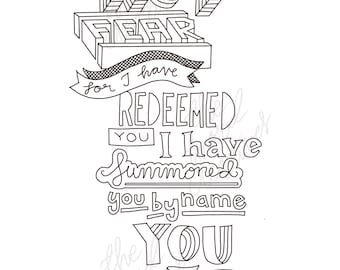 FEAR
for I have
REDEEMED
YOU I have
Summoned
you by name
YOU